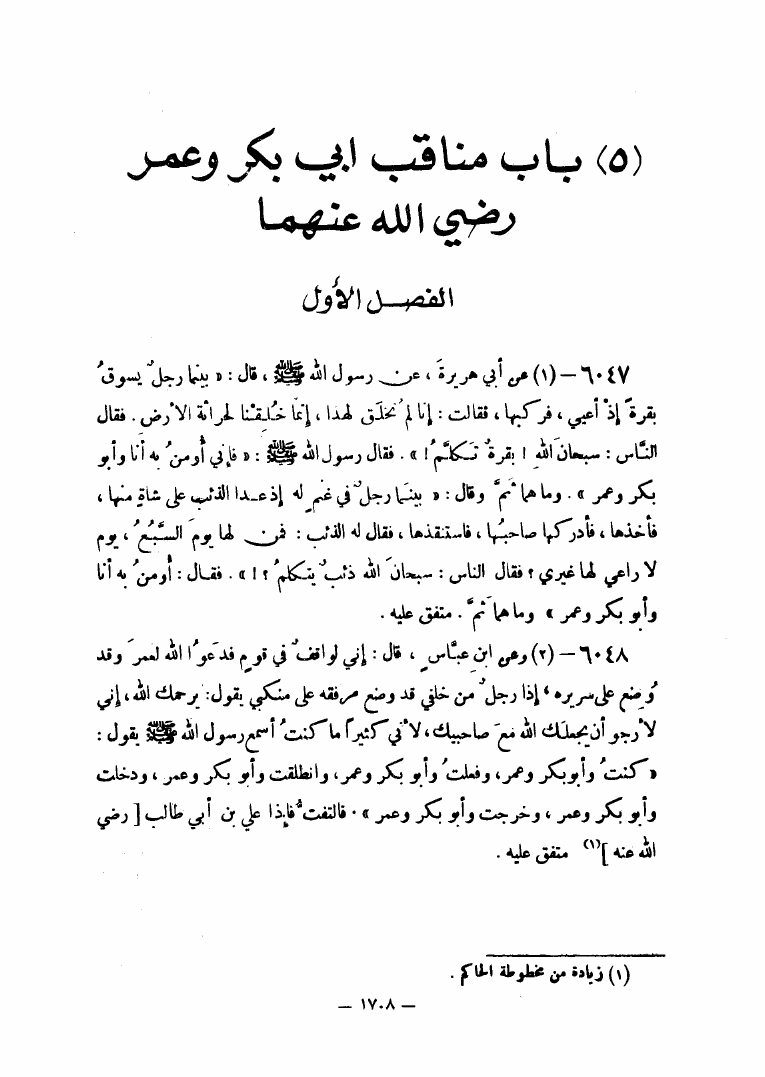 (٥) باب مناقب ابي بكر وعمر
رضي الله عنهما
الفصل الأول
٦٠٤٧ – (١) عن أبي هريرةَ ، عن رسول الله ﷺ ، قال : « بينما رجلٌ يسوقُ
بقرةً إذْ أعيي ، فركبها ، فقالت : إنا لم نُخلَق لهذا ، إنَّما خُلِقْنا لحراثة الأرض . فقال
النَّاس : سبحانَ اللهِ ! بقرةٌ تَكلَّمُ ! » . فقال رسول الله ﷺ : « فإني أُومنُ به أنا وأبو
بكر وعمر » . وما هما ثَمَّ وقال : « بينَما رجلٌ في غنمٍ له إذ عدا الذئب على شاةٍ منها ،
فأخذها ، فأدركها صاحبُها ، فاستنقذها ، فقال له الذئب : فمن لها يومَ السَّبُعُ ، يوم
لا راعي لها غيري ؟ فقال الناس : سبحانَ الله ذئبٌ يتكلمُ ؟ ! » . فقال : أُومنُ به أنا
وأبو بكر وعمر » وما هما ثَمَّ . متفق عليه .
٦٠٤٨ – (٢) وعن ابنِ عبَّاسٍ ، قال : إني لواقفٌ في قومٍ فدعَوُا الله لعمرَ وقد
وُضِع على سريره ، إذا رجلٌ من خلفي قد وضع مرفقه على منكبي يقول : يرحمك الله ، إني
لأرجو أن يجعلك الله معَ صاحبيك ، لأني كثيراً ما كنتُ أسمع رسول الله ﷺ يقول :
« كنتُ وأبو بكر وعمر ، وفعلتُ وأبو بكر وعمر ، وانطلقت وأبو بكر وعمر ، ودخلت
وأبو بكر وعمر ، وخرجت وأبو بكر وعمر » . فالتفتُّ فإذا علي بن أبي طالب [ رضي
الله عنه ](١) متفق عليه .
(١) زيادة من مخطوطة الحاكم .
– ١٧٠٨ –